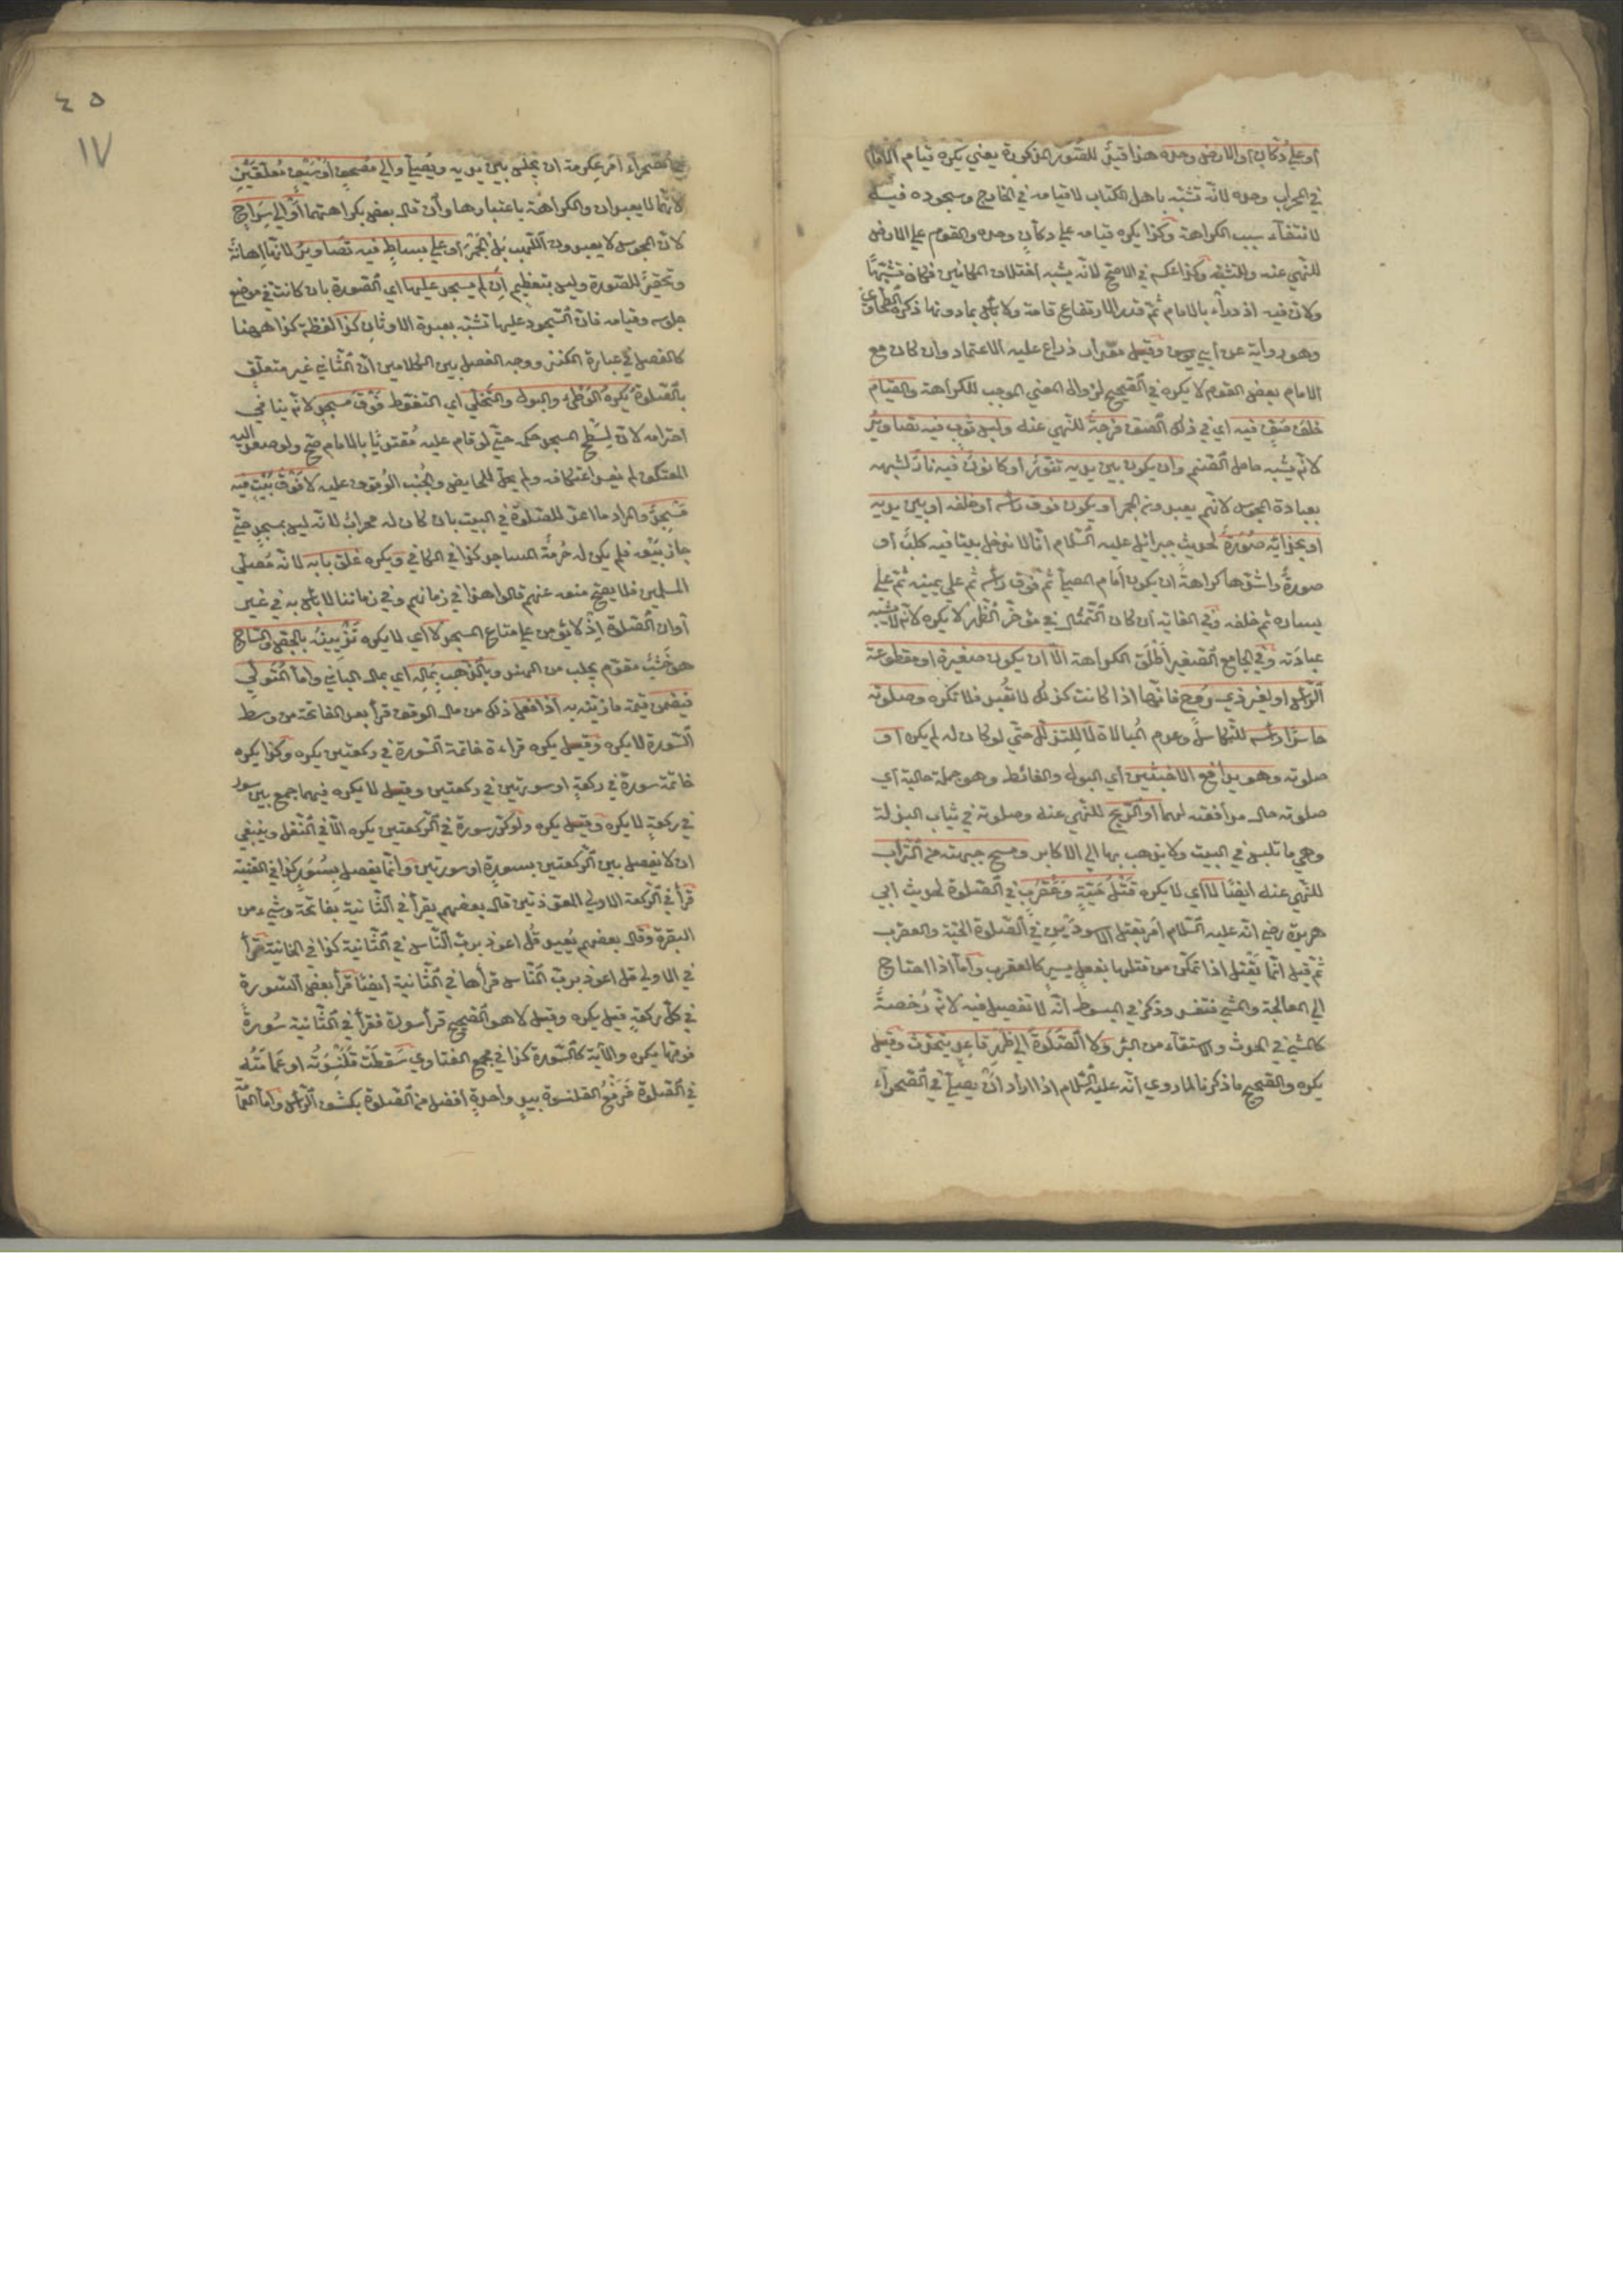 او علي دكان او الارض وحده هذا قيد للصور المذكورة يعني يكره قيام الامام
في المحراب وحده لانه تشبه باهل الكتاب لا قيامه في الخارج وسجوده فيه
لانتفاء سبب الكراهة وكذا يكره قيامه علي دكان وحده والقوم علي الارض
للنهي عنه وللتشبه وكذا عكسه في الاصح لانه يشبه اختلاف المكانين فكان تشبها
ولان فيه ازدراء بالامام ثم قدر الارتفاع قامة ولا بأس بما دونها ذكره الطحاوي
وهو رواية عن ابي يوسف وقيل مقدار ذراع عليه الاعتماد وان كان مع
الامام بعض القوم لا يكره في الصحيح لزوال المعني الموجب للكراهة والقيام
خلف صف فيه اي في ذلك الصف فرجة للنهي عنه ولبس ثوب فيه تصاوير
لانه يشبه حامل الصنم وان يكون بين يديه تنور او كانون فيه نار لشبهه
بعبادة المجوس لانهم يعبدونه الجمر او يكون فوق رأسه او خلفه او بين يديه
او بحذائه صورة لحديث جبرائيل عليه السلام انا لا ندخل بيتا فيه كلب او
صورة واشدها كراهة ان يكون امام المصلي ثم فوق رأسه ثم علي يمينه ثم علي
يساره ثم خلفه وفي الغاية ان كان التمثال في مؤخر الظهر لا يكره لانه لا يشبه
عبادته وفي الجامع الصغير اطلق الكراهة الا ان يكون صغيرة او مقطوعة
الرأس او لغير ذي روح فانها اذا كانت كذلك لا تعبد فلا تكره وصلوته
حاسرا رأسه للتكاسل وعدم المبالاة لا للتذلل حتي لو كان له لم يكره او
صلوته وهو يدافع الاخبثين اي البول والغائط وهو جملة حالية اي
صلوته حال مدافعته لهما او الريح للنهي عنه وصلوته في ثياب البذلة
وهي ما تلبس في البيت ولا يذهب بها الي الاكابر ومسح جبهته من التراب
للنهي عنه ايضا لا اي لا يكره قتل حية وعقرب في الصلوة لحديث ابي
هريرة رضي انه عليه السلام امر بقتل الاسودين في الصلوة الحية والعقرب
ثم قيل انما يقتل اذا تمكن من قتلها بفعل يسير كالعقرب واما اذا احتاج
الي المعالجة والمشي فتفسد وذكر في المبسوط انه لا تفصيل فيه لانه رخصة
كالمشي في الحدث والاستقاء من البئر ولا الصلوة الي ظهر قاعد يتحدث وقيل
يكره والصحيح ما ذكرنا لما روي انه عليه السلام اذا اراد ان يصلي في الصحراء
٤٥
١٧
في الصحراء امر عكرمة ان يجلس بين يديه ويصلي والي مصحف او سيف معلقين
لانهما لا يعبدان والكراهة باعتبارها وان قال بعض بكراهتهما او الي سراج
لان المجوس لا يعبدون اللهب بل الجمر او علي بساط فيه تصاوير لانها اهانة
وتحقير للصورة وليس بتعظيم ان لم يسجد عليها اي الصورة بان كانت في موضع
جلوسه وقيامه فان السجود عليها تشبه بعبدة الاوثان كذا لفظة كذا ههنا
كالفصل في عبارة الكنز ووجه الفصل بين الكلامين ان الثاني غير متعلق
بالصلوة يكره الوطئ والبول والتخلي اي التغوط فوق مسجد لانه ينافي
احترامه لان لسطح المسجد حكمه حتي لو قام عليه مقتديا بالامام صح ولو صعد اليه
المعتكف لم يفسد اعتكافه ولم يحل للحايض والجنب الوقوف عليه لا فوق بيت فيه
مسجد والمراد ما اعد للصلوة في البيت بان كان له محراب لانه ليس بمسجد حتي
جاز بيعه فلم يكن له حرمة المساجد كذا في الكافي ويكره غلق بابه لانه مصلي
المسلمين فلا يصح منعه عنهم قالوا هذا في زمانهم وفي زماننا لا بأس به في غير
اوان الصلوة اذ لا يؤمن علي متاع المسجد لا اي لا يكره تزيينه بالجص والساج
هو خشب مقوم يجلب من الهند وبالذهب بماله اي بمال الباني واما المتولي
فيضمن قيمة ما زينه به اذا فعل ذلك من مال الوقف قرأ بعد الفاتحة من وسط
السورة لا يكره وقيل يكره قراءة خاتمة السورة في ركعتين يكره وكذا يكره
خاتمة سورة في ركعة او سورتين في ركعتين وقيل لا يكره فيهما جمع بين سور
في ركعة لا يكره وقيل يكره ولو كرر سورة في الركعتين يكره الا في النفل وينبغي
ان لا يفصل بين الركعتين بسورة او سورتين وانما يفصل بسور كذا في القنية
قرأ في الركعة الاولي المعوذتين قال بعضهم يقرأ في الثانية بفاتحة وشيء من
البقرة وقال بعضهم يعيد قل اعوذ برب الناس في الثانية كذا في الخانية قرأ
في الاولي قل اعوذ برب الناس قرأها في الثانية ايضا قرأ بعض السورة
في كل ركعة قيل يكره وقيل لا هو الصحيح قرأ سورة فقرأ في الثانية سورة
فوقها يكره والآية كالسورة كذا في مجمع الفتاوي سقطت قلنسوته او عمامته
في الصلوة فرفع القلنسوة بيد واحدة افضل من الصلوة بكشف الرأس واما العمامة